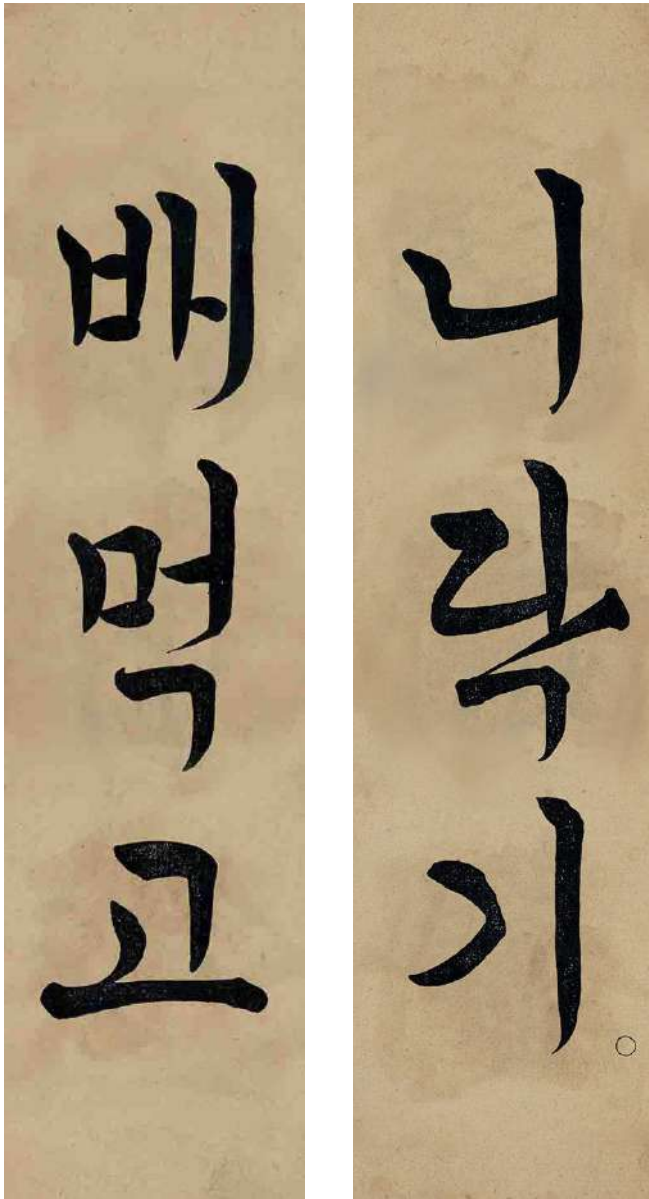 배먹고
니닥기。